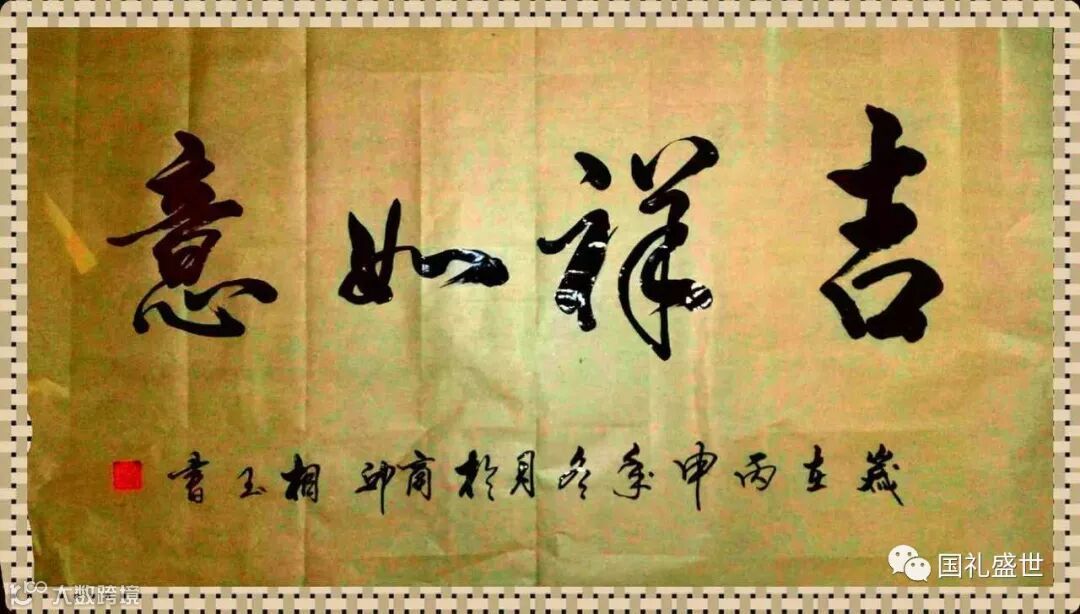 吉祥如意
歲在丙申年冬月於商邱相玉書
国礼盛世
大数跨境